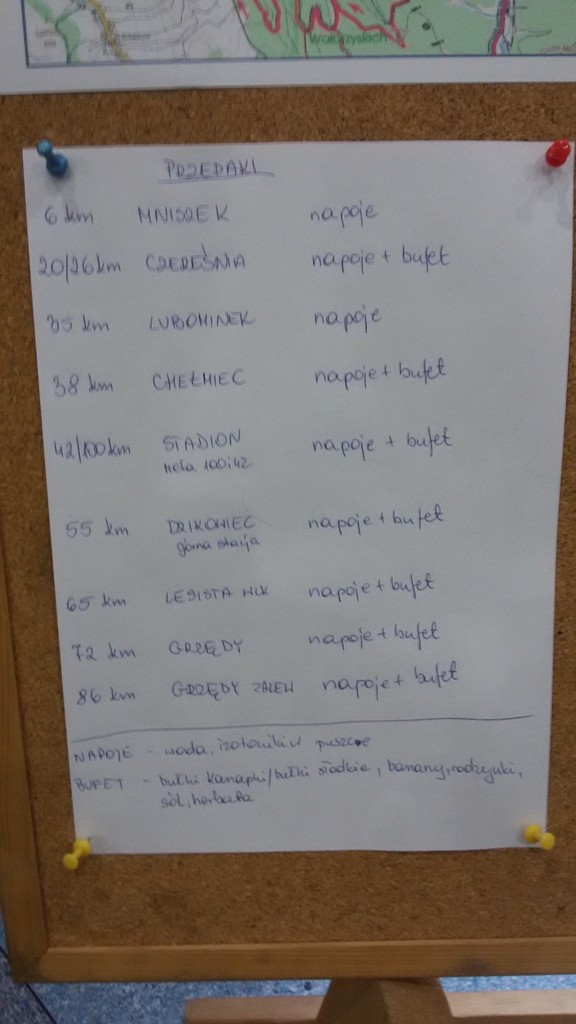 Wałbrzyskich
PRZEPAKI
6 km MNISZEK napoje
20/26 km CZEREŚNIA napoje + bufet
35 km LUBOMINEK napoje
38 km CHEŁMIEC napoje + bufet
42/100 km STADION napoje + bufet
meta 100 i 42
55 km DZIKOWIEC napoje + bufet
górna stacja
65 km LESISTA WLK napoje + bufet
72 km GRZĘDY napoje + bufet
86 km GRZĘDY ZALEW napoje + bufet
NAPOJE - woda, izotonik w puszce
BUFET - bułki kanapki/bułki słodkie, banany, rodzynki,
sól, herbata